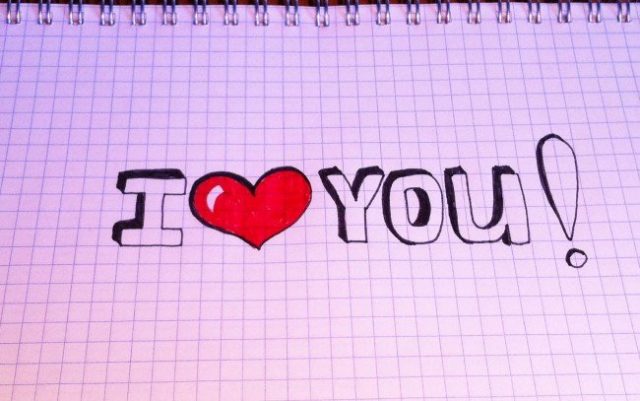 I ❤ YOU!